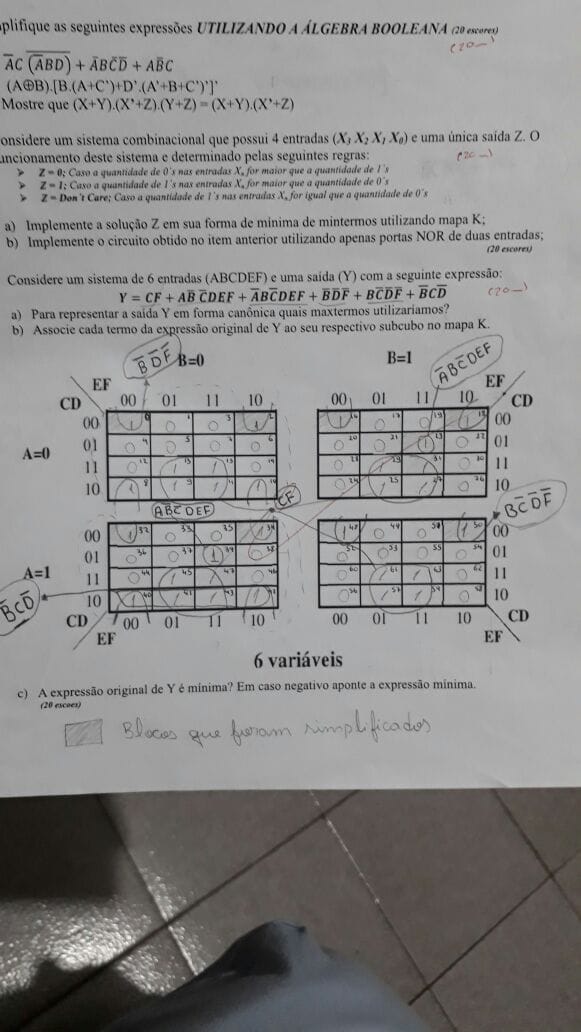 plifique as seguintes expressões UTILIZANDO A ÁLGEBRA BOOLEANA (20 escores)
(20—)
A̅C (A̅BD)̅ + A̅BC̅D̅ + AB̅C
(A⊕B).[B.(A+C')+D'.(A'+B+C')']'
Mostre que (X+Y).(X'+Z).(Y+Z) = (X+Y).(X'+Z)
onsidere um sistema combinacional que possui 4 entradas (X₃ X₂ X₁ X₀) e uma única saída Z. O
uncionamento deste sistema e determinado pelas seguintes regras:
(20—)
➢ Z = 0; Caso a quantidade de 0's nas entradas Xₙ for maior que a quantidade de 1's
➢ Z = 1; Caso a quantidade de 1's nas entradas Xₙ for maior que a quantidade de 0's
➢ Z = Don't Care; Caso a quantidade de 1's nas entradas Xₙ for igual que a quantidade de 0's
a) Implemente a solução Z em sua forma de minima de mintermos utilizando mapa K;
b) Implemente o circuito obtido no item anterior utilizando apenas portas NOR de duas entradas;
(20 escores)
Considere um sistema de 6 entradas (ABCDEF) e uma saída (Y) com a seguinte expressão:
Y = CF + AB̅ C̅DEF + A̅BC̅DEF + B̅D̅F̅ + BC̅D̅F̅ + B̅CD̅
(20—)
a) Para representar a saída Y em forma canônica quais maxtermos utilizaríamos?
b) Associe cada termo da expressão original de Y ao seu respectivo subcubo no mapa K.
B̅ D̅ F̅ B=0 B=1 A̅BC̅DEF
EF EF
CD 00 01 11 10 00 01 11 10 CD
00 1 0 0 1 2 16 0 17 0 19 00
01 0 4 0 5 0 0 6 0 20 0 21 1 23 0 22 01
A=0
11 0 12 1 13 1 15 0 14 29 31 0 30 11
10 1 8 1 9 1 11 1 0 24 1 25 1 27 0 26 10
AB̅C̅DEF CF
BC̅D̅F̅
00 1 32 0 33 0 35 1 34 1 48 0 49 0 1 50 00
01 0 36 0 37 1 39 0 38 0 52 0 53 0 55 0 54 01
A=1
11 0 44 1 45 1 47 0 46 0 60 1 61 1 63 0 62 11
10 1 40 1 41 1 43 1 0 56 1 57 1 59 0 58 10
B̅CD̅
CD 00 01 11 10 00 01 11 10 CD
EF EF
6 variáveis
c) A expressão original de Y é mínima? Em caso negativo aponte a expressão mínima.
(20 escores)
Blocos que foram simplificados